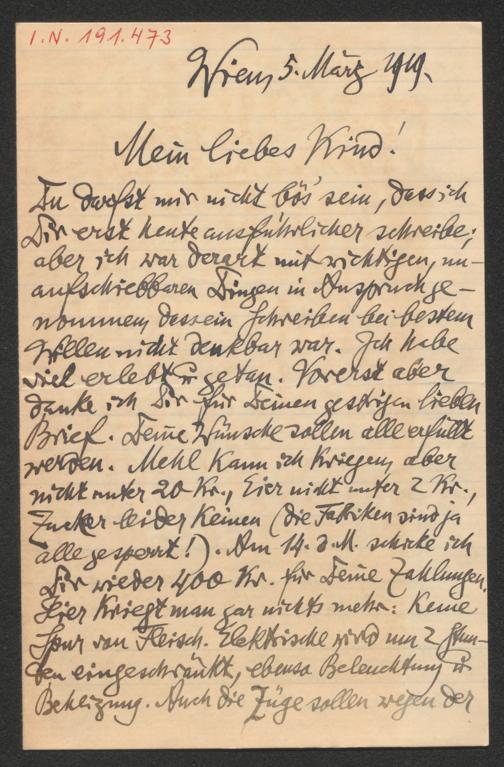 I.N. 191.473
Wien, 5. März 1919.
Mein liebes Kind!
Du darfst mir nicht bös sein, dass ich
Dir erst heute ausführlicher schreibe;
aber ich war derart mit wichtigen, un-
aufschiebbaren Dingen in Anspruch ge-
nommen, dass ein Schreiben bei bestem
Willen nicht denkbar war. Ich habe
viel erlebt u getan. Vorerst aber
danke ich Dir für Deinen gestrigen lieben
Brief. Deine Wünsche sollen alle erfüllt
werden. Mehl kann ich kriegen, aber
nicht unter 20 Kr., Eier nicht unter 2 Kr.,
Zucker leider keinen (die Fabriken sind ja
alle gesperrt!). Am 14. d. M. schicke ich
Dir wieder 400 Kr. für Deine Zahlungen.
Hier kriegt man gar nichts mehr: keine
Spur von Fleisch. Elektrische wird um 2 Stun-
den eingeschränkt, ebenso Beleuchtung u
Beheizung. Auch die Züge sollen wegen der